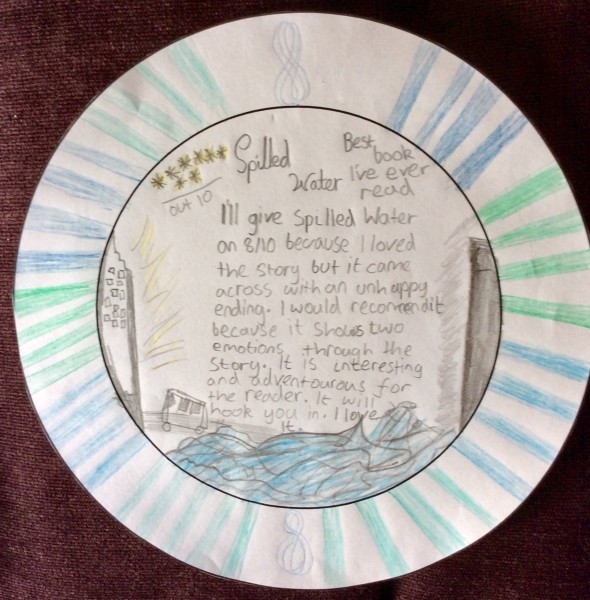 8
Spilled
Water
Best
book
I've ever
read
out 10
I'll give Spilled Water
an 8/10 because I loved
the story but it came
across with an unhappy
ending. I would recommend it
because it shows two
emotions through the
story. It is interesting
and adventourous for
the reader. It will
hook you in. I love
It.
8